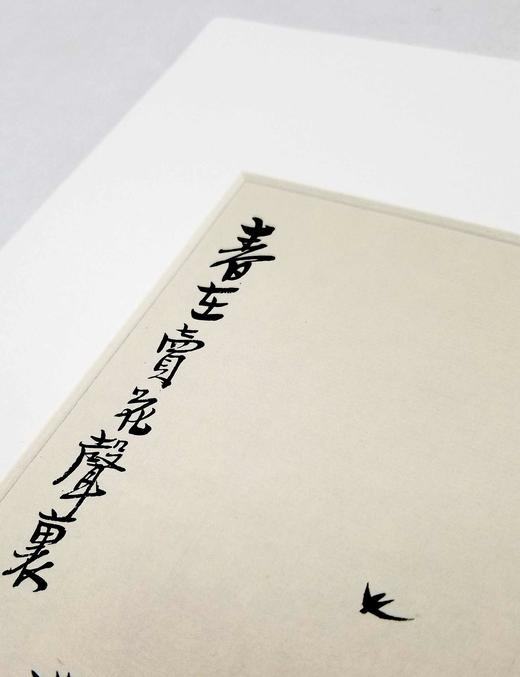 春在賣花聲裏